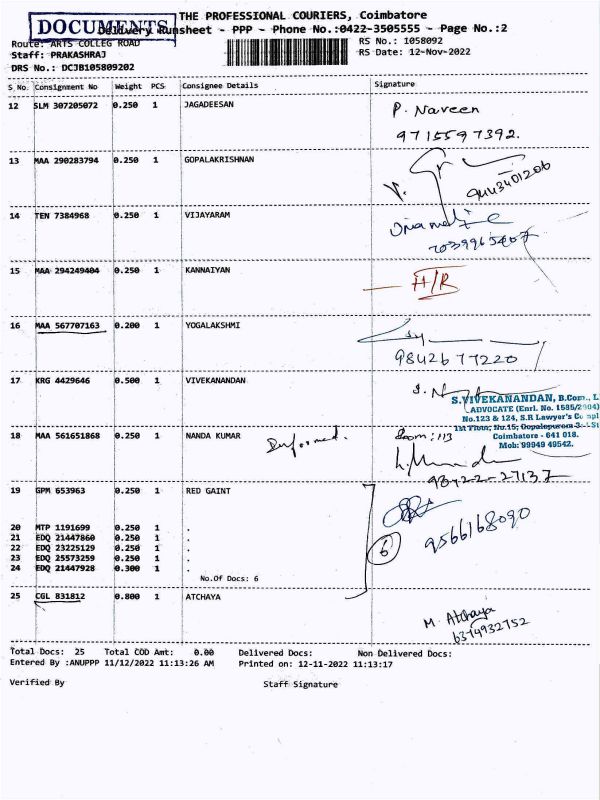 DOCUMENTS THE PROFESSIONAL COURIERS, Coimbatore
Delivery Runsheet - PPP - Phone No.:0422-3505555 - Page No.:2
Route: ARTS COLLEG ROAD RS No.: 1058092
Staff: PRAKASHRAJ RS Date: 12-Nov-2022
DRS No.: DCJB105809202
S No. Consignment No Weight PCS Consignee Details Signature
12 SLM 307205072 0.250 1 JAGADEESAN P. Naveen
9715597392.
13 MAA 290283794 0.250 1 GOPALAKRISHNAN
9443401206
14 TEN 7384968 0.250 1 VIJAYARAM
15 MAA 294249404 0.250 1 KANNAIYAN H/R
16 MAA 567707163 0.200 1 YOGALAKSHMI
9842677220
17 KRG 4429646 0.500 1 VIVEKANANDAN
S.VIVEKANANDAN, B.Com., L
ADVOCATE (Enrl. No. 1585/2004)
No.123 & 124, S.R Lawyer's Compl
1st Floor, No.15, Gopalapuram 3rd St
Coimbatore - 641 018.
Mob: 99949 49542.
18 MAA 561651868 0.250 1 NANDA KUMAR Informed. Room: 113
98422-27137
19 GPM 653963 0.250 1 RED GAINT
9566168090
20 MTP 1191699 0.250 1 .
21 EDQ 21447860 0.250 1 .
22 EDQ 23225129 0.250 1 .
23 EDQ 25573259 0.250 1 .
24 EDQ 21447928 0.300 1 .
6
No.Of Docs: 6
25 CGL 831812 0.800 1 ATCHAYA
M. Atchaya
6374932752
Total Docs: 25 Total COD Amt: 0.00 Delivered Docs: Non Delivered Docs:
Entered By :ANUPPP 11/12/2022 11:13:26 AM Printed on: 12-11-2022 11:13:17
Verified By Staff Signature